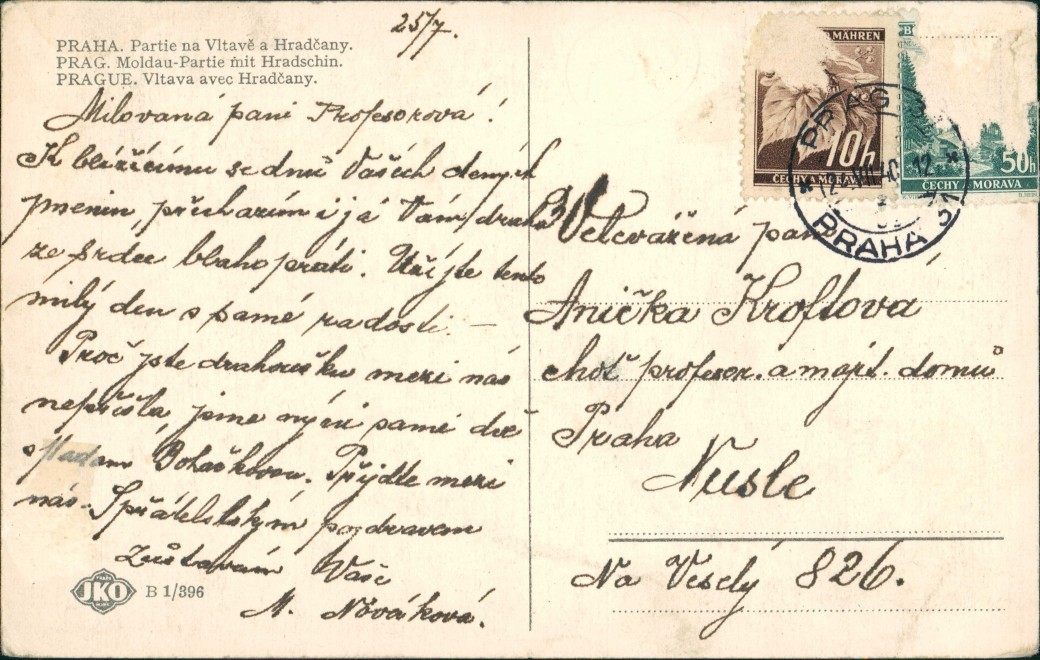 25/7.
PRAHA. Partie na Vltavě a Hradčany.
PRAG. Moldau-Partie mit Hradschin.
PRAGUE. Vltava avec Hradčany.
Milovaná paní Profesorová!
K blížícímu se dnů Vašich
jmenin, přicházím i já Vám drahá
ze srdce blahopřáti. Užijte tento
milý den s samé radosti. –
Proč jste drahoušku mezi nás
nepřišla, jsme nyní samé dvě
s Madam Boháčkovou. Přijďte mezi
nás. S přátelským pozdravem
Zůstavám Vaše
M. Nováková.
JKO
B 1/396
MÄHREN
10h
ČECHY A MORAVA
50h
ČECHY A MORAVA
PRAG
PRAHA 31
Velevážená paní
Anička Kroftova
choť profesor. a majit. domů
Praha
Nusle
Na Veselý 826.